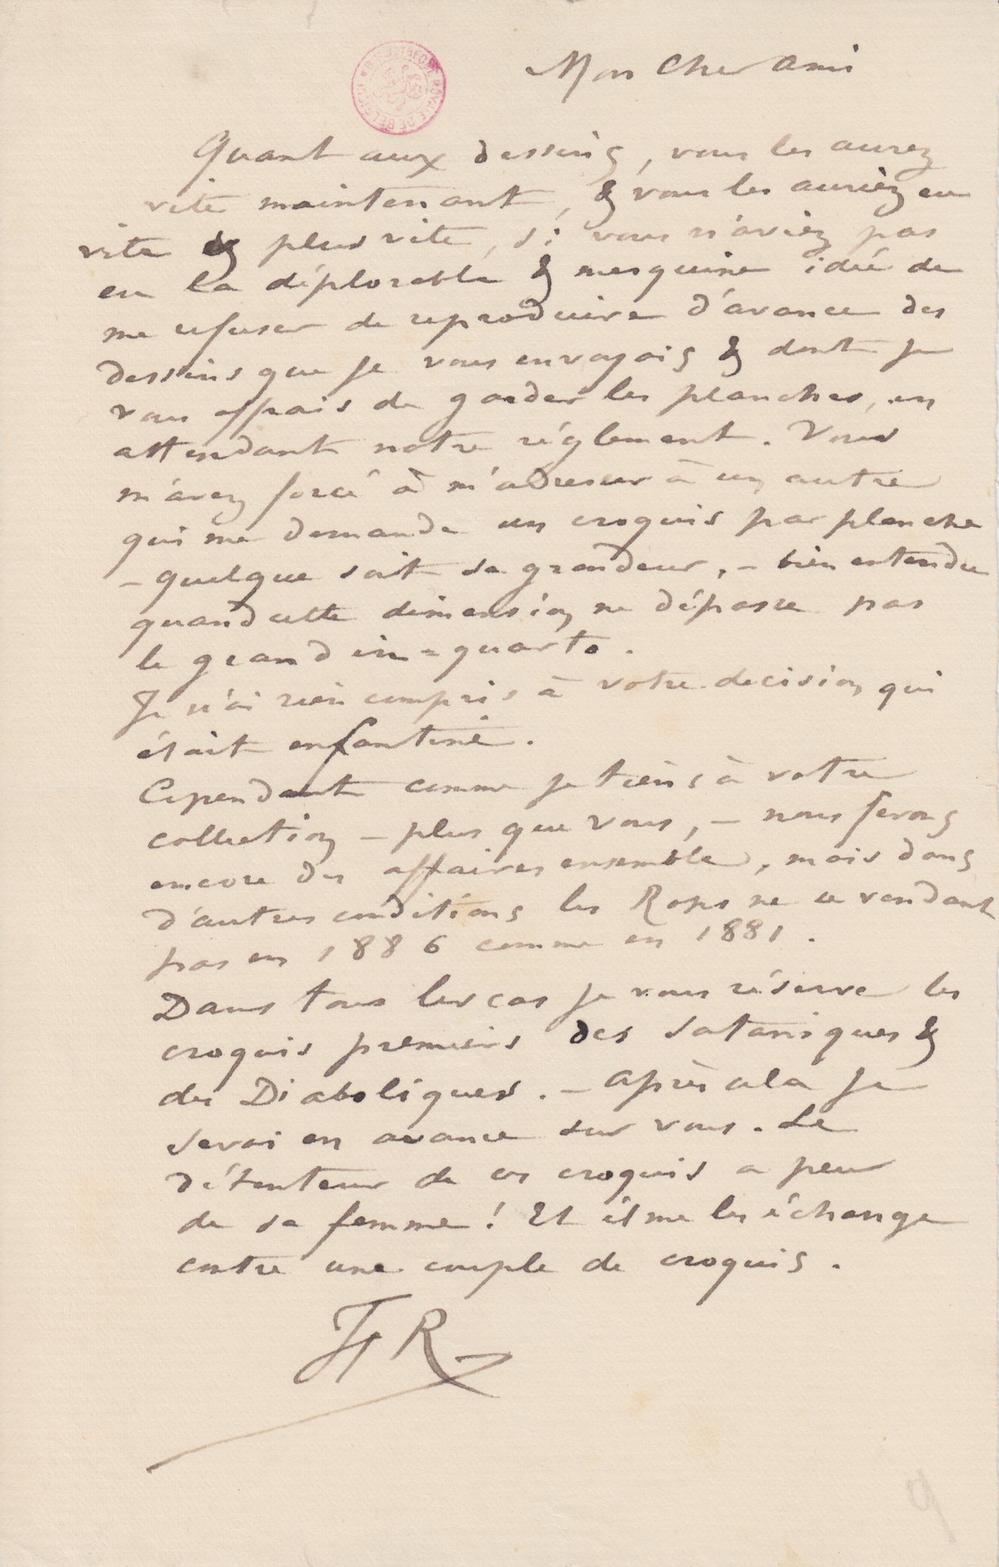 Mon Cher Ami
Quant aux dessins, vous les aurez
vite maintenant, & vous les auriez eu
vite & plus vite, si vous n'aviez pas
eu la déplorable & mesquine idée de
me refuser de reproduire d'avance des
dessins que je vous envoyais & dont je
vous offrais de garder les planches, en
attendant notre règlement. Vous
m'avez forcé à m'adresser à un autre
qui me demande un croquis par planche
– quelque soit sa grandeur, – bien entendu
quand cette dimension ne dépasse pas
le grand in-quarto.
Je n'ai rien compris à votre decision qui
était enfantine.
Cependant comme je tiens à votre
collection – plus que vous, – nous ferons
encore des affaires ensemble, mais dans
d'autres conditions les Rops ne se vendant
pas en 1886 comme en 1881.
Dans tous les cas je vous réserve les
croquis premiers des Sataniques &
des Diaboliques. – Après cela je
serai en avance sur vous. Le
détenteur de ces croquis a peur
de sa femme ! Et il me les échange
contre une couple de croquis.
FR
9